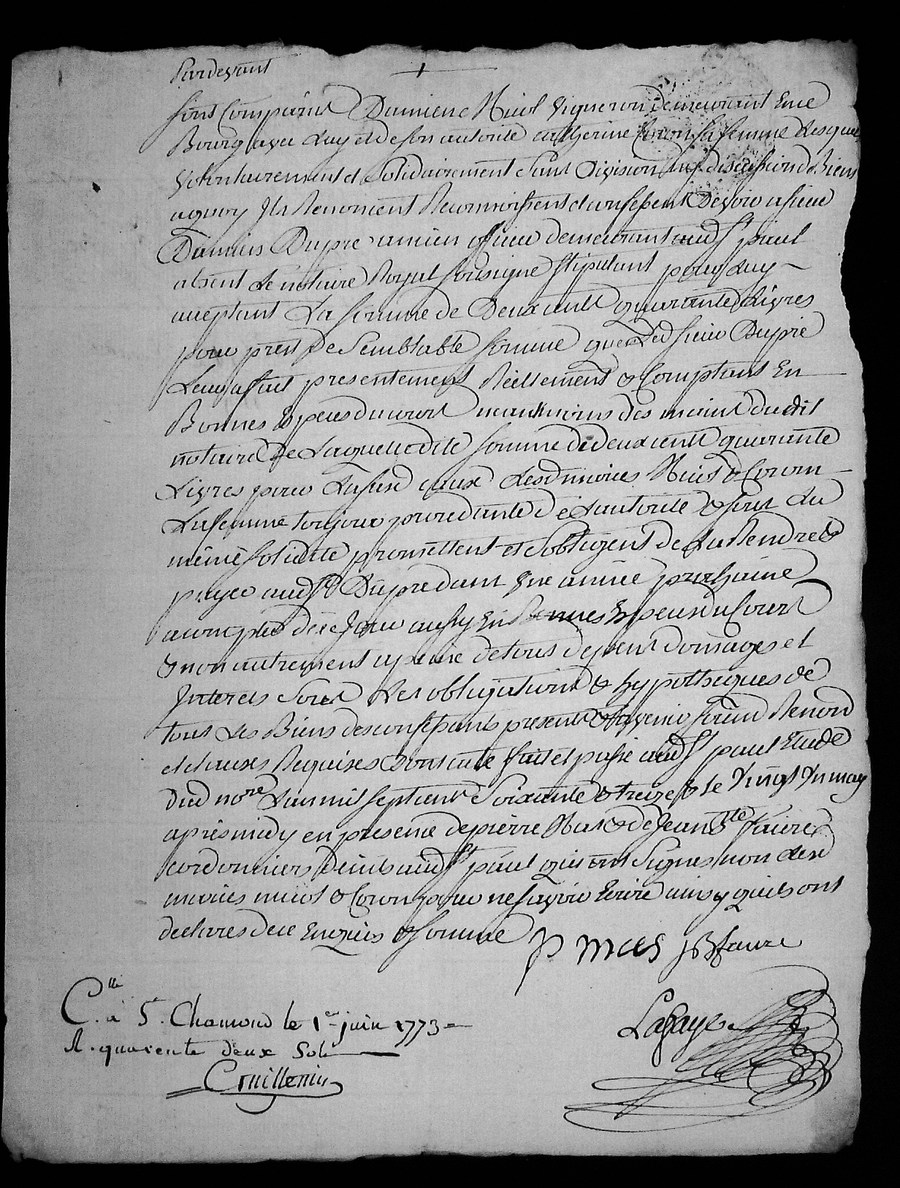 Pardevant
sont Comparus Damiene Niod Vigneron demeurant En ce
Bourg avec luy et de son autorité Catherine sa femme Lesquels
Volontairement et Solidairement Sans Division discussion de Biens
aquoy Ils Renoncent Reconnoissent et Confessent Devoir a sieur
Damien Dupré ancien demeurant aud St paul
absent Le notaire Royal soussigné stipulant pour Luy
acceptant La somme de Deux cent quarante Livres
pour prest de Semblable somme que Led sieur Dupré
Leur a fait presentement Réellement & Comptant En
Bonnes Especes du cours des mains dudit
notaire De Laquelle dite somme de deux cent quarante
Livres pour Lesdits mariés &
La femme toujours procedante de L'autorité & sous La
même solidité promettent et s'obligent de La Rendre &
payer aud Sr Dupré dans une année prochaine
a compter de ce Jour aussy En Bonnes Especes du Cours
& non autrement a peine de tous depens domages et
Interets Sous Les obligations & hypotheques de
tous Les Biens des confessants presents & avenir Renon
et clauses Requises Dont acte fait et passé aud St paul Etude
dud nore L'an mil sept cent Soixante & treize & le Vingt Un may
après midy en présence de pierre Mas & de Jean Bte Faure
cordonniers aud St paul qui ont Signés non lesd
mariés & pour ne savoir Ecrire ainsy qu'ils ont
déclarés de ce Enquis & sommé
P mas JB faure
C.lle à St. Chamond le 1er juin 1773
R. quarente deux Sols
Lafaye